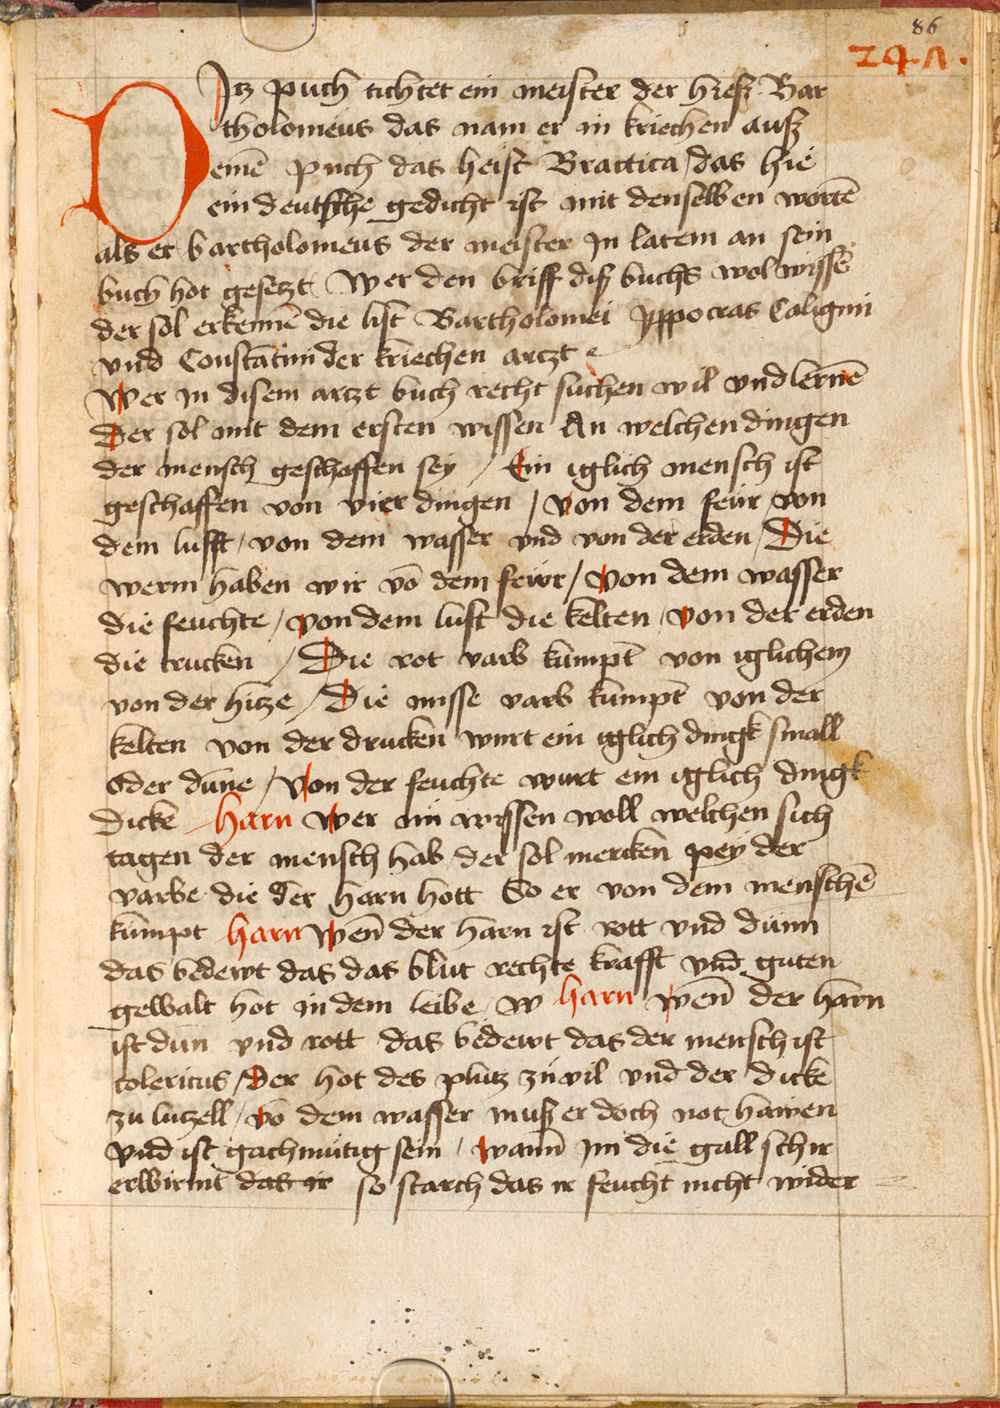 86
241.
Itz puch tichtet ein meister der hieß Bar
tholomeus das nam er in kriechen auß
einē puch das heist Bractica / das hie
ein deutsche gedicht ist mit denselben wortē
als er bartholomeus der meister jn latein an sein
buch hot gesetzt Wer den briff diß buchs wol wissē
der sol erkennē die list Bartholomei Ippocras Galigini
vnd Constātini der kriechen artzt
Wer in disem artzt buch recht suchen wil vnd lernē
Der sol mit dem ersten wissen An welchen dingen
der mensch geschaffen sey / Ein iglich mensch ist
geschaffen von vier dingen / von dem feür von
dem lufft / von dem wasser vnd von der erden / Die
werm haben wir vō dem feüer / von dem wasser
die feuchte / von dem luft die kelten / von der erden
die trucken / Die rot varb kumpt von iglichem
von der hitze / Die wisse varb kumpt von der
kelten von der drucken wirt ein iglich dingk small
Oder dūne / Von der feuchte wirt ein iglich dingk
dicke harn Wer nu wissen woll welchen sich
tagen der mensch hab / der sol mercken pey der
varbe die der harn hott So er von dem menschē
kumpt harn Wen̄ der harn ist rott vnd dunn
das bedewt das das blut rechte krafft vnd guten
gewalt hot in dem leibe / w harn wen̄ der harn
ist dun vnd rott das bedewt das der mensch ist
colericus / Der hot des plutz zu vil vnd der dicke
zu lutzell / vō dem wasser muß er doch not hawen
vnd ist gachmutig sein / wann im die gall schir
erwirmt das ir so starch das ir feucht nicht wider